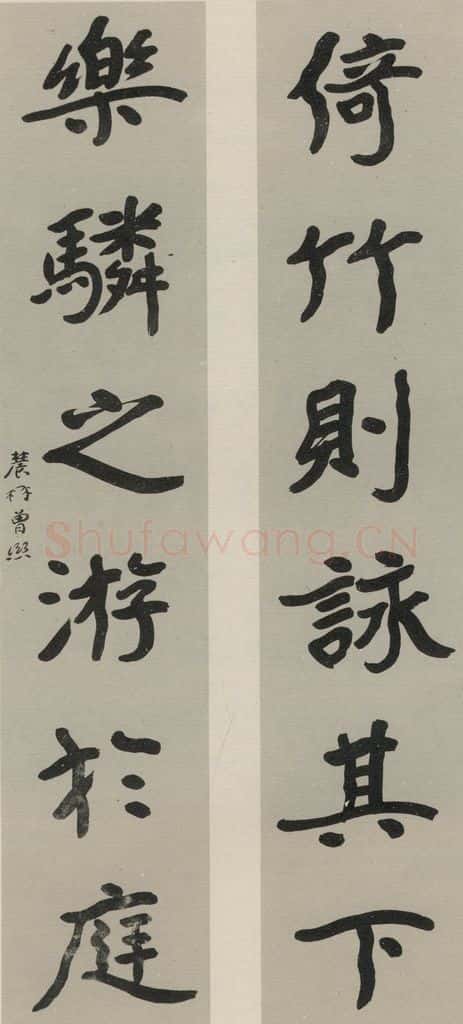 倚竹則詠其下
樂驎之游於庭
農髯曾熙
Shufawang.CN